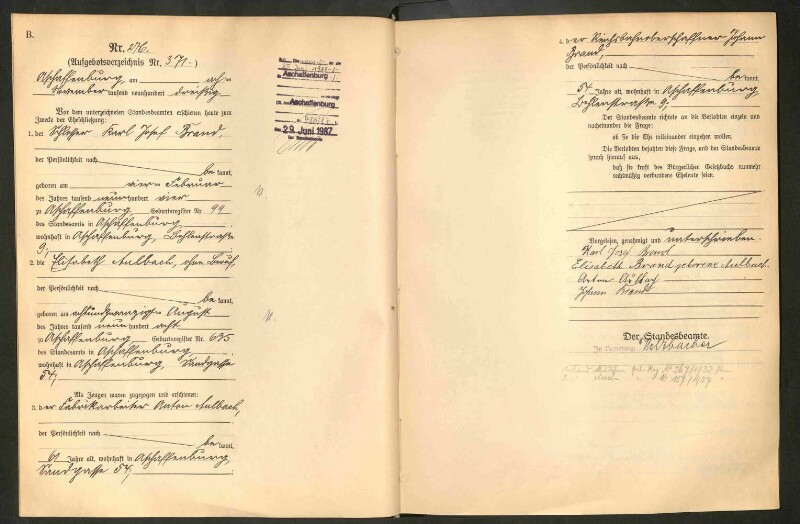 B.
Nr. 276.
(Aufgebotsverzeichnis Nr. 371.)
Aschaffenburg, am ach-
November tausend neunhundert dreißig
Vor dem unterzeichneten Standesbeamten erschienen heute zum
Zwecke der Eheschließung:
1. der Schlosser Karl Josef Brand,
der Persönlichkeit nach
be kannt,
geboren am vier- Februar
des Jahres tausend neunhundert vier
zu Aschaffenburg, Geburtsregister Nr. 99
des Standesamts in Aschaffenburg
wohnhaft in Aschaffenburg, Behlenstraße
9;
2. die Elisabeth Aulbach, ohne Beruf,
der Persönlichkeit nach
be kannt,
geboren am achtundzwanzigst- August
des Jahres tausend neun hundert acht
zu Aschaffenburg, Geburtsregister Nr. 635
des Standesamts in Aschaffenburg
wohnhaft in Aschaffenburg, Sandgasse
54;
Als Zeugen waren zugezogen und erschienen:
3. der Fabrikarbeiter Anton Aulbach,
der Persönlichkeit nach
be kannt,
61 Jahre alt, wohnhaft in Aschaffenburg,
Sandgasse 54;
Aschaffenburg
Aschaffenburg
29. Juni 1987
4. der Reichsbahnoberschaffner Johann
Brand,
der Persönlichkeit nach
be kannt,
54 Jahre alt, wohnhaft in Aschaffenburg
Behlenstraße 9;
Der Standesbeamte richtete an die Verlobten einzeln und
nacheinander die Frage:
ob sie die Ehe miteinander eingehen wollen.
Die Verlobten bejahten diese Frage, und der Standesbeamte
sprach hierauf aus,
daß sie kraft des Bürgerlichen Gesetzbuchs nunmehr
rechtmäßig verbundene Eheleute seien.
Vorgelesen, genehmigt und unterschrieben.
Karl Josef Brand
Elisabeth Brand geborene Aulbach.
Anton Aulbach
Johann Brand
Der Standesbeamte.
In Vertretung: